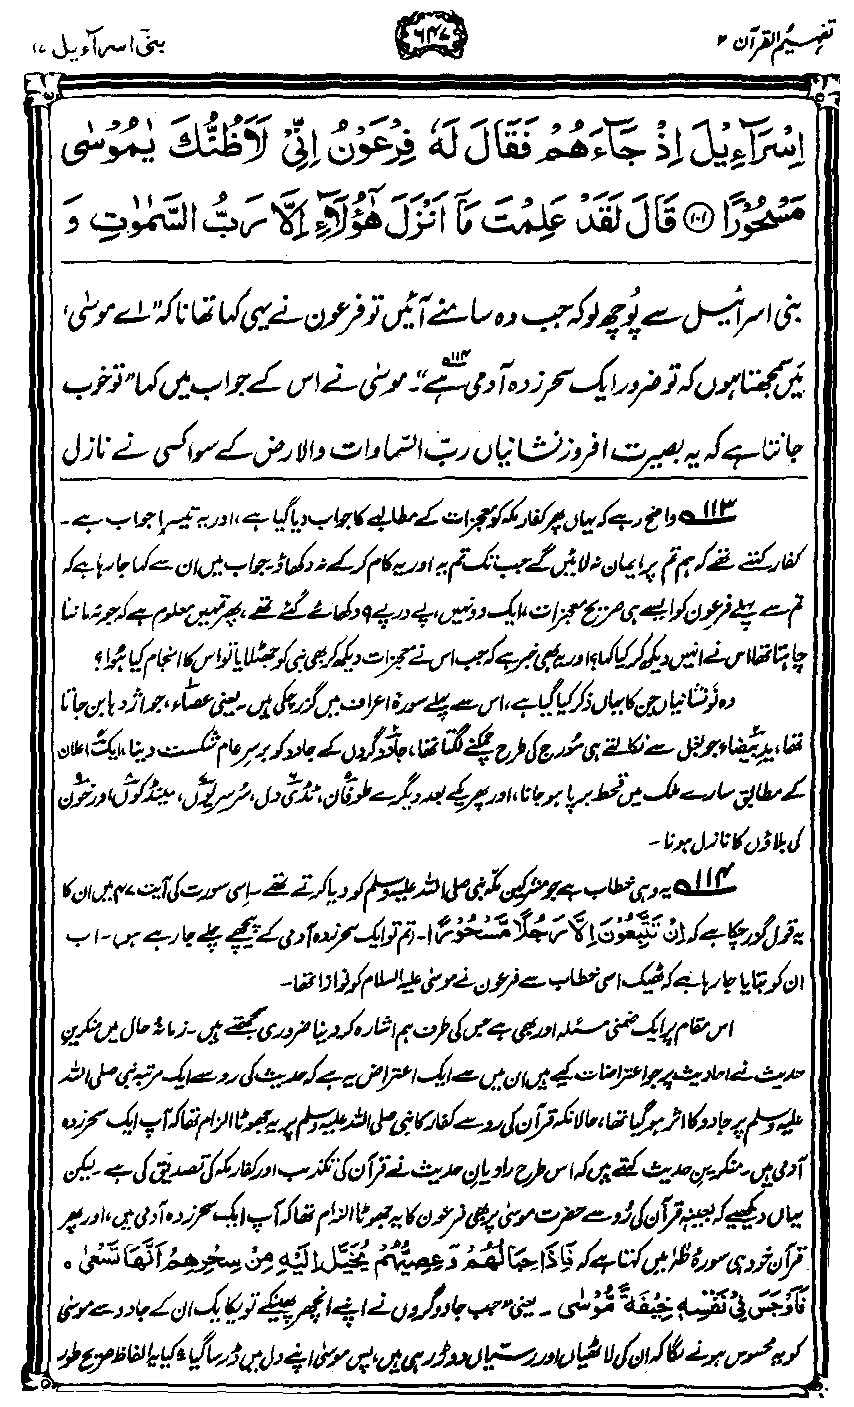 تفہیم القرآن ۲
۶۴۷
بنی اسرآءیل ۱۷
اِسْرَآءِیْلَ اِذْ جَآءَهُمْ فَقَالَ لَهٗ فِرْعَوْنُ اِنِّیْ لَاَظُنُّكَ یٰمُوْسٰی
مَسْحُوْرًا ۝۱۰۱ قَالَ لَقَدْ عَلِمْتَ مَاۤ اَنْزَلَ هٰۤؤُلَآءِ اِلَّا رَبُّ السَّمٰوٰتِ وَ
بنی اسرائیل سے پُوچھ لو کہ جب وہ سامنے آئیں تو فرعون نے یہی کہا تھا نا کہ ”اے موسیٰ،
مَیں سمجھتا ہوں کہ تو ضرور ایک سحر زدہ آدمی ہے“۔۱۱۴ موسیٰ نے اس کے جواب میں کہا ”تو خوب
جانتا ہے کہ یہ بصیرت افروز نشانیاں ربّ السّماوات والارض کے سوا کسی نے نازل
۱۱۳ واضح رہے کہ یہاں پھر کفار مکہ کو معجزات کے مطالبے کا جواب دیا گیا ہے، اور یہ تیسرا جواب ہے۔
کفار کہتے تھے کہ ہم تم پر ایمان نہ لائیں گے جب تک تم یہ اور یہ کام کر کے نہ دکھاؤ۔ جواب میں ان سے کہا جا رہا ہے کہ
تم سے پہلے فرعون کو ایسے ہی صریح معجزات، ایک دو نہیں، پے در پے ۹ دکھائے گئے تھے، پھر تمہیں معلوم ہے کہ جو نہ ماننا
چاہتا تھا اس نے انہیں دیکھ کر کیا کہا؟ اور یہ بھی خبر ہے کہ جب اس نے معجزات دیکھ کر بھی نبی کو جھٹلایا تو اس کا انجام کیا ہُوا؟
وہ نو نشانیاں جن کا یہاں ذکر کیا گیا ہے، اس سے پہلے سورۂ اعراف میں گزر چکی ہیں۔ یعنی عصاء، جو اژدہا بن جاتا
تھا، یدِ بیضاء جو بغل سے نکالتے ہی سُورج کی طرح چمکنے لگتا تھا، جادوگروں کے جادو کو برسرِ عام شکست دینا، ایک اعلان
کے مطابق سارے ملک میں قحط برپا ہو جانا، اور پھر یکے بعد دیگرے طوفان، ٹڈی دل، سُرسریوں، مینڈکوں اور خون
کی بلاؤں کا نازل ہونا۔
۱۱۴ یہ وہی خطاب ہے جو مشرکین مکہ نبی صلی اللہ علیہ وسلم کو دیا کرتے تھے۔ اِسی سورت کی آیت ۴۷ میں ان کا
یہ قول گزر چکا ہے کہ اِنْ تَتَّبِعُوْنَ اِلَّا رَجُلًا مَّسْحُوْرًا۔ (تم تو ایک سحر زدہ آدمی کے پیچھے چلے جا رہے ہو)۔ اب
ان کو بتایا جا رہا ہے کہ ٹھیک اسی خطاب سے فرعون نے موسیٰ علیہ السلام کو نوازا تھا۔
اس مقام پر ایک ضمنی مسئلہ اور بھی ہے جس کی طرف ہم اشارہ کر دینا ضروری سمجھتے ہیں۔ زمانۂ حال میں منکرین
حدیث نے احادیث پر جو اعتراضات کیے ہیں ان میں سے ایک اعتراض یہ ہے کہ حدیث کی رو سے ایک مرتبہ نبی صلی اللہ
علیہ وسلم پر جادو کا اثر ہو گیا تھا، حالانکہ قرآن کی رو سے کفار کا نبی صلی اللہ علیہ وسلم پر یہ جھوٹا الزام تھا کہ آپ ایک سحر زدہ
آدمی ہیں۔ منکرینِ حدیث کہتے ہیں کہ اس طرح راویانِ حدیث نے قرآن کی تکذیب اور کفار مکہ کی تصدیق کی ہے۔ لیکن
یہاں دیکھیے کہ بعینہٖ قرآن کی رُو سے حضرت موسیٰ پر بھی فرعون کا یہ جھوٹا الزام تھا کہ آپ ایک سحر زدہ آدمی ہیں، اور پھر
قرآن خود ہی سورۂ طٰہٰ میں کہتا ہے کہ فَاِذَا حِبَالُهُمْ وَعِصِیُّهُمْ یُخَیَّلُ اِلَیْهِ مِنْ سِحْرِهِمْ اَنَّهَا تَسْعٰی ۔
فَاَوْجَسَ فِیْ نَفْسِهٖ خِیْفَةً مُّوْسٰی ۔ یعنی ”جب جادوگروں نے اپنے انچھر پھینکے تو یکایک ان کے جادو سے موسیٰ
کو یہ محسوس ہونے لگا کہ ان کی لاٹھیاں اور رسّیاں دوڑ رہی ہیں، پس موسیٰ اپنے دل میں ڈر سا گیا“ کیا یہ الفاظ صریح طور